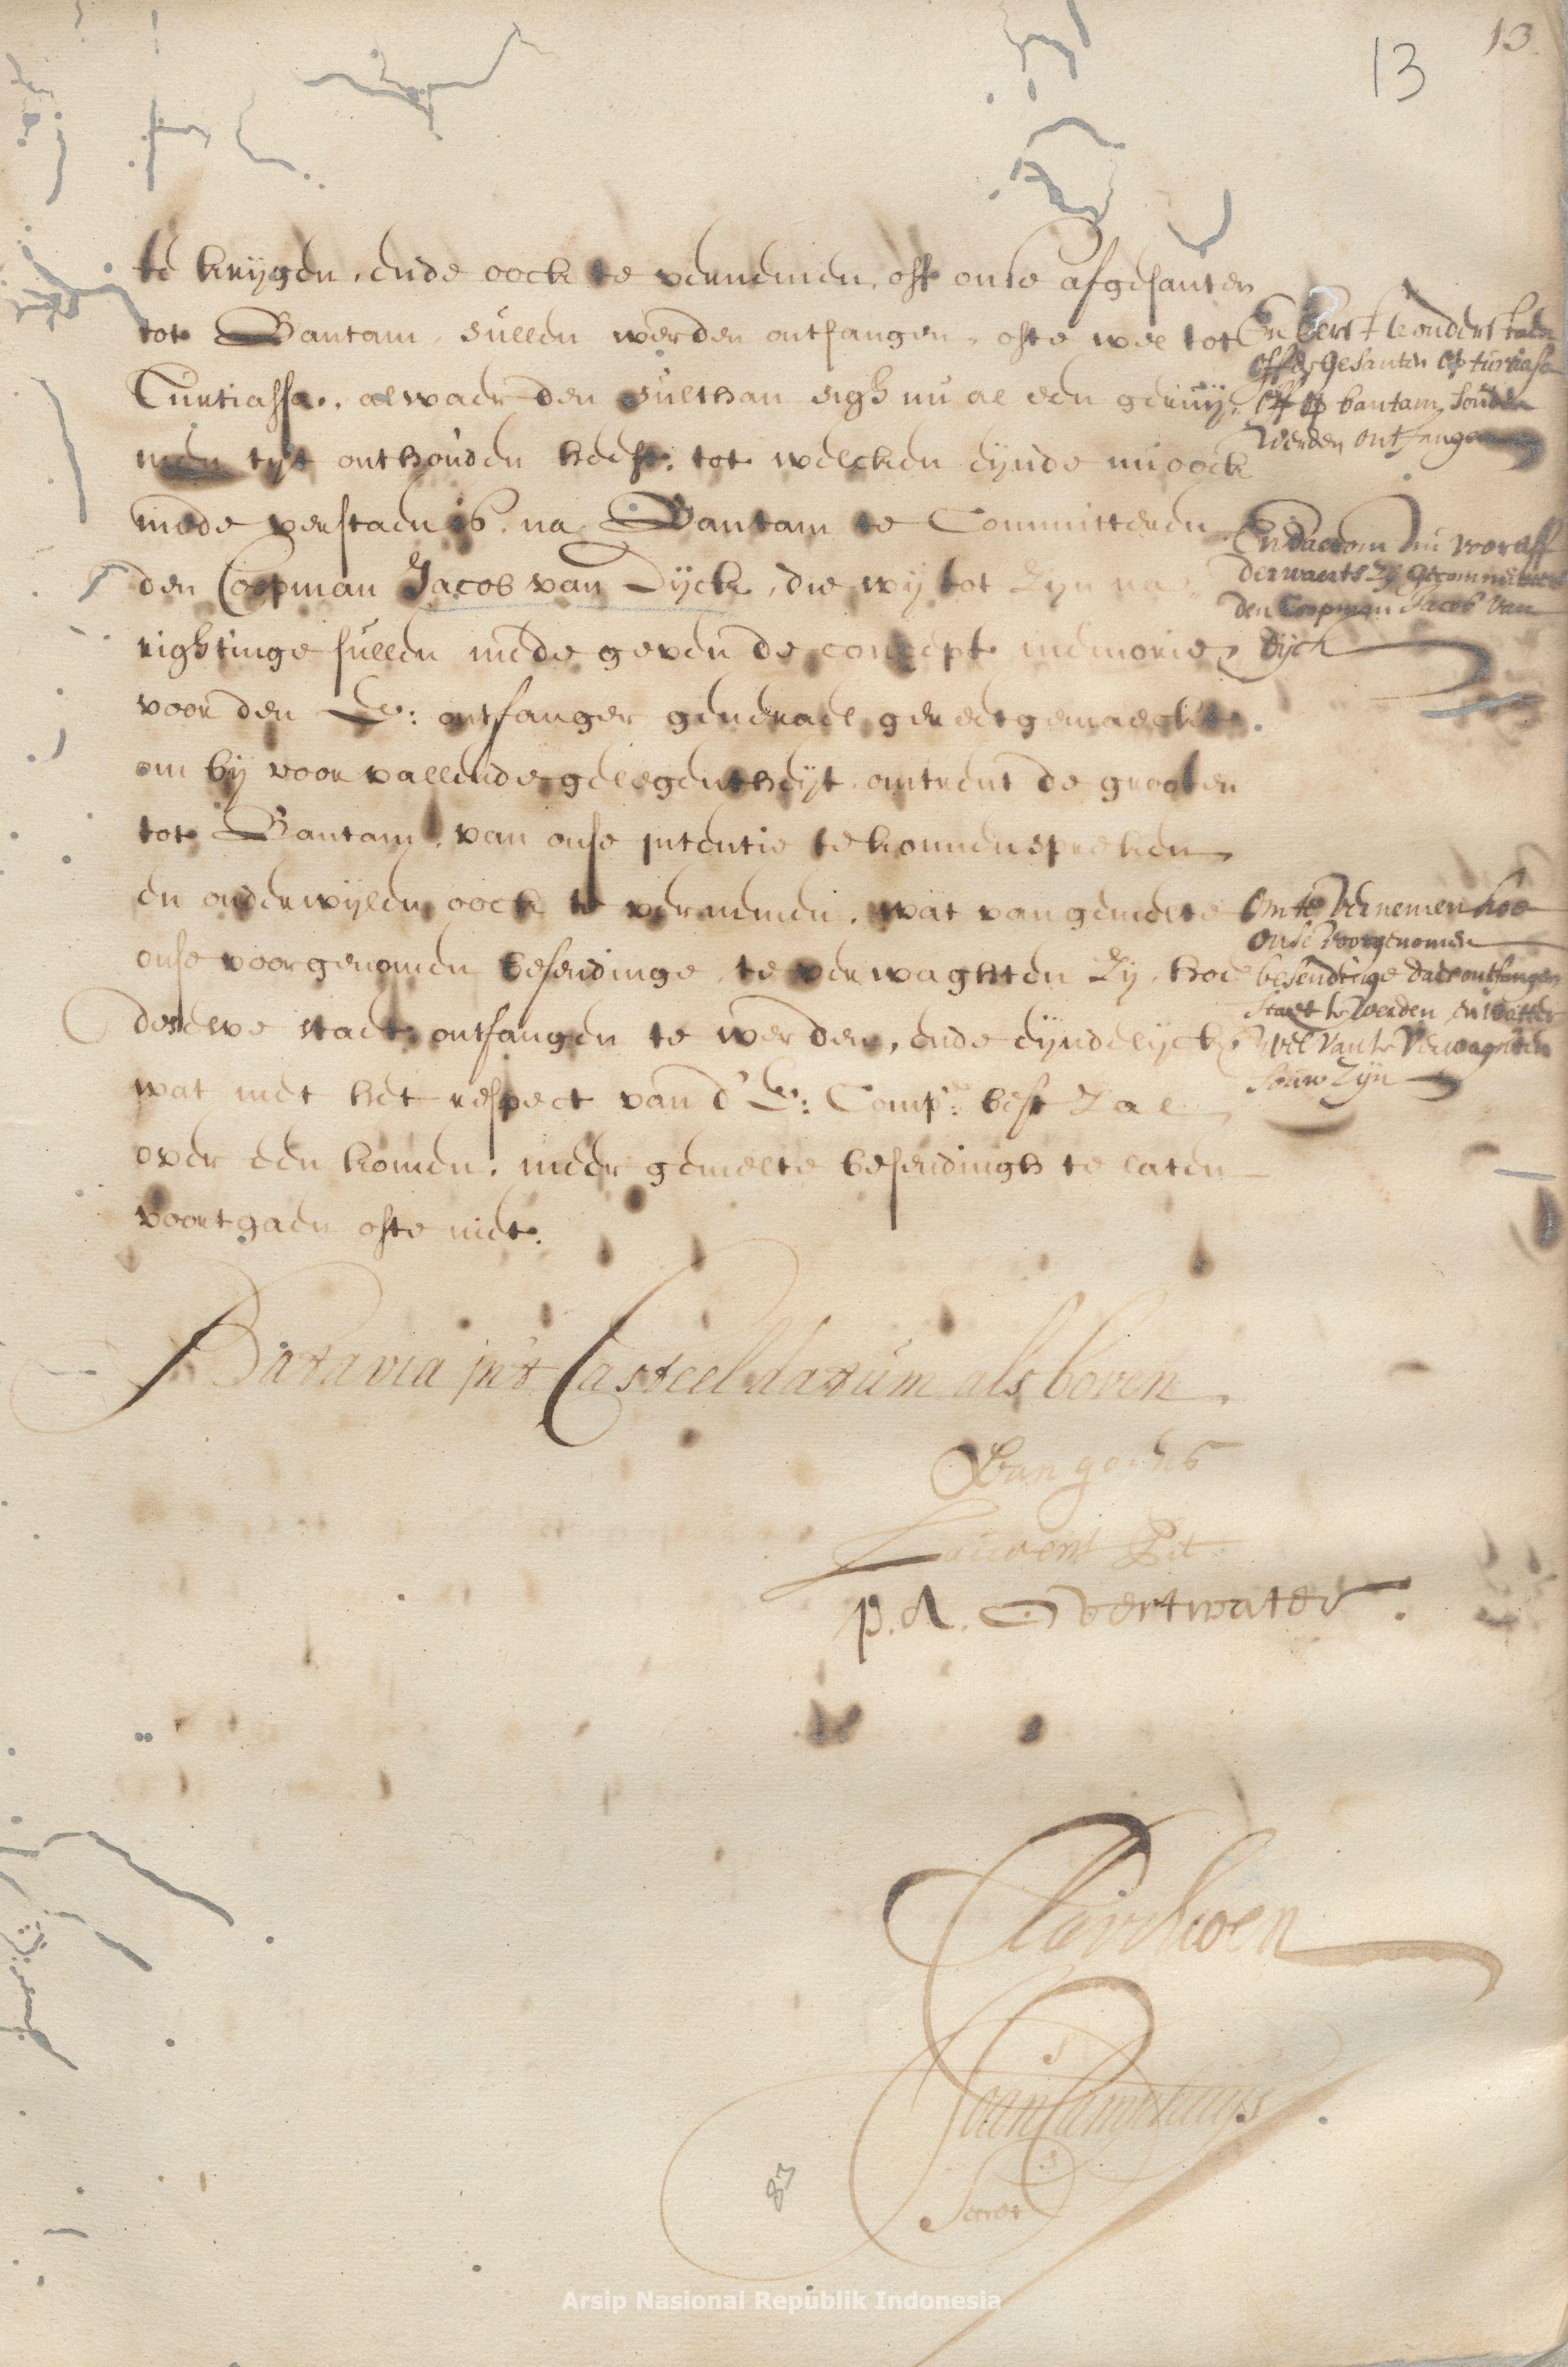 13
13.
te krijgen, ende oock te vernemen, off onse afgesanten
tot Bantam, sullen werden ontfangen, ofte wel tot
Turtiassa, alwaer den sulthan sigh nu al een geruij-
men tijt onthouden heeft, tot welcken eijnde nu oock
mede verstaen is, na Bantam te Committeren
den Coopman Jacob van Dijck, die wij tot zijn na-
rightinge sullen mede geven de concept memorie
voor den E: ontfanger generael gereet gemaeckt
om bij voorvallende gelegentheijt omtrent de grooten
tot Bantam, van onse intentie te konnen spreken
en onderwijlen oock te vernemen, wat van gemelte
onse voorgenomen besendinge, te verwaghten zij, hoe
deselve staet ontfangen te werden, ende eijndelijck
wat met het respect van d' E: Comp:e best zal
over een komen, meer gemelte besendingh te laten
voortgaen ofte niet.
En eerst te onderstaen
off de Gesanten op turtiasa
off op bantam souden
werden ontfangen
En daerom nu vooraff
derwaerts zij gecommitteert
den Coopman Jacob van
Dijck
Om te vernemen hoe
onse voorgenomen
besendinge daer ontfangen
staet te werden en watter
wel van te verwaghten
souw zijn
Batavia in't Casteel datum als boven
Van goens
Laurens Pit
p. A. Overtwater.
Joan Camphuijs
Secret
83
Arsip Nasional Republik Indonesia